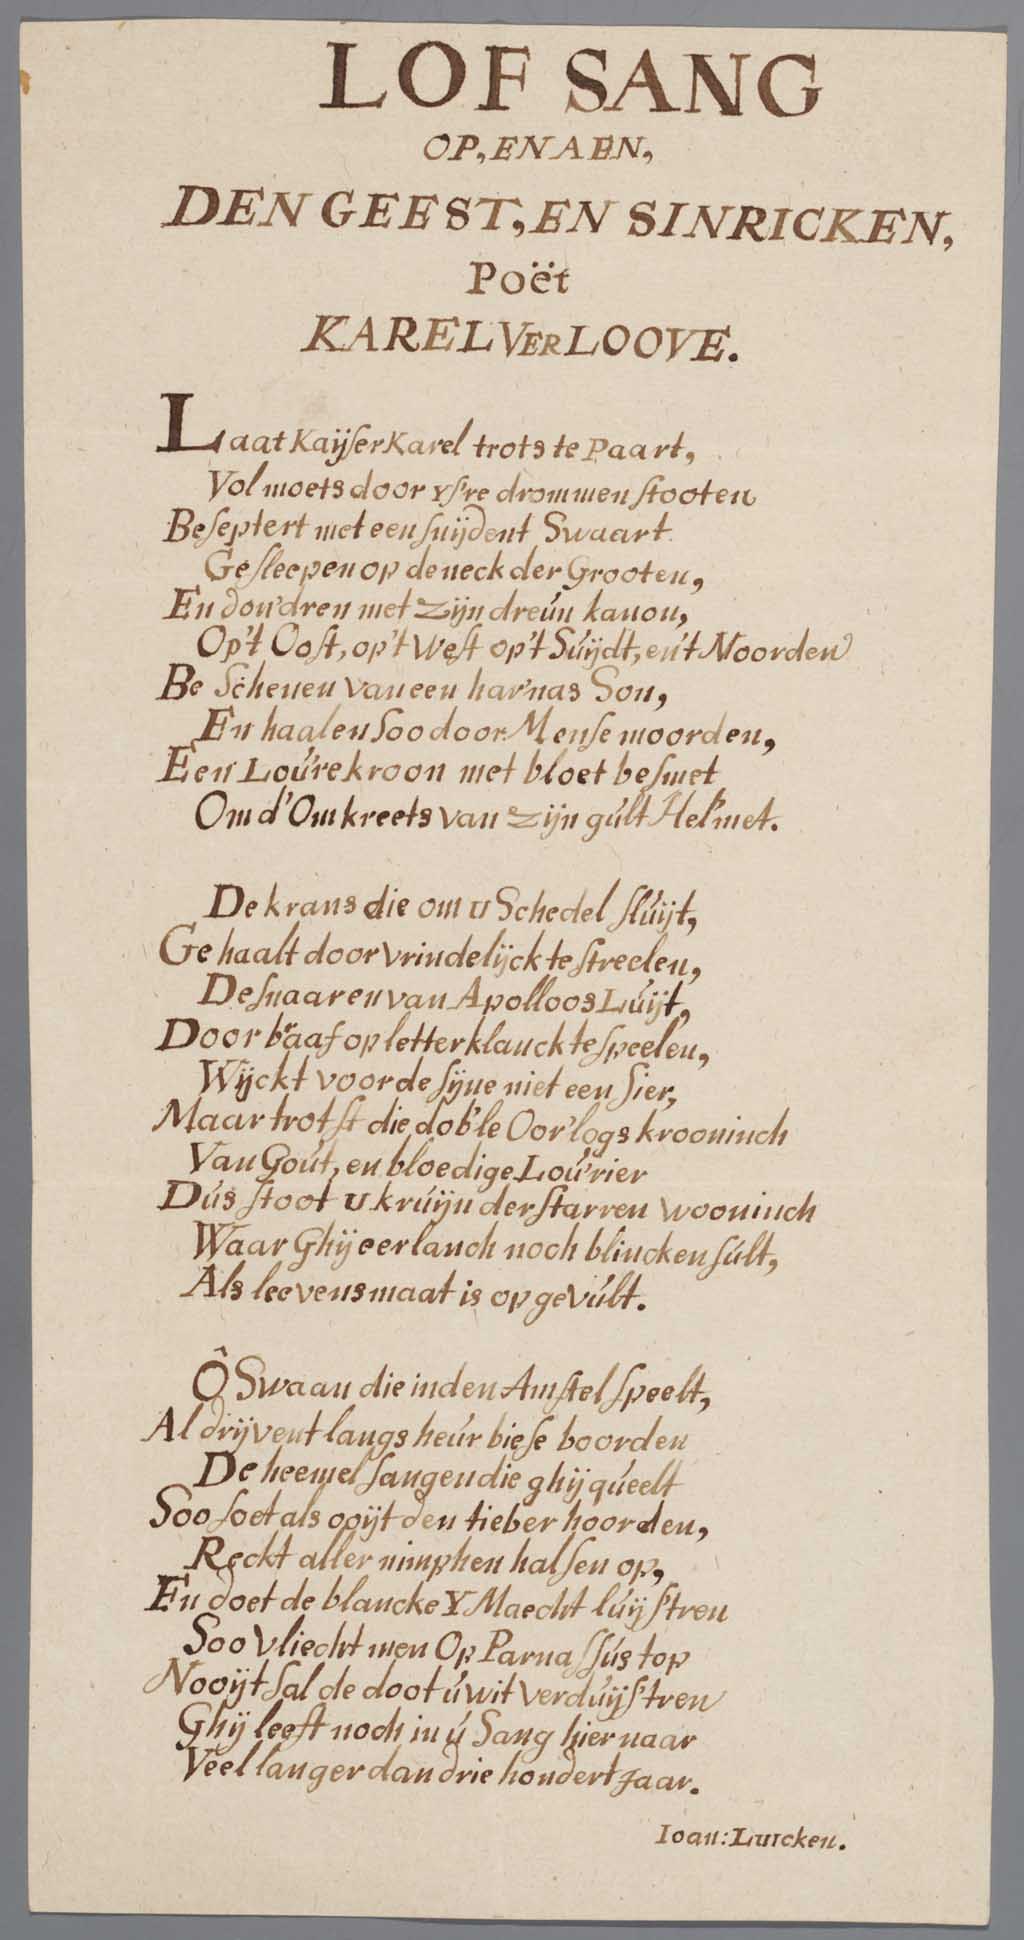 LOF SANG
OP, EN AEN,
DEN GEEST, EN SINRICKEN,
Poët
KAREL VER LOOVE.
Laat Kaÿser Karel trots te Paart,
Vol moets door Ys're drommen stooten
Beseptert met een snÿdent Swaart
Gesleepen op de neck der Grooten,
En don'dren met zÿn dreún kanon,
Op't Oost, op't West op't Súÿdt, en't Noorden
Be Schenen van een har'nas Son,
En haalen soo door Mense moorden,
Een Loúrekroon met bloet besmet
Om d'Omkreets van zijn gúlt Hel'met.
De krans die om u Schedel slúÿt,
Gehaalt door vrindelÿck te streelen,
De snaaren van Apolloos Lúÿt,
Door braaf op letterklanck te speelen,
Wÿckt voor de sÿne niet een sier,
Maar trotst die dob'le Oor'logs krooninch
Van Goút, en bloedige Loúrier
Dús stoot u krúÿn der starren wooninch
Waar Ghÿ eerlanch noch blincken súlt,
Als leevens maat is op gevúlt.
Ô Swaan die in den Amstel speelt,
Al drÿvent langs heúr biese boorden
De heemel sangen die ghÿ qúeelt
Soo soet als ooÿt den tieber hoorden,
Reckt aller nimphen halsen op,
En doet de blancke Y Maecht lúÿs'tren
Soo vliecht men Op Parnassús top
Nooÿt sal de doot ú wit verdúÿs'tren
Ghÿ leeft noch in ú Sang hier naar
Veel langer dan drie hondert Jaar.
Ioan: Luicken.